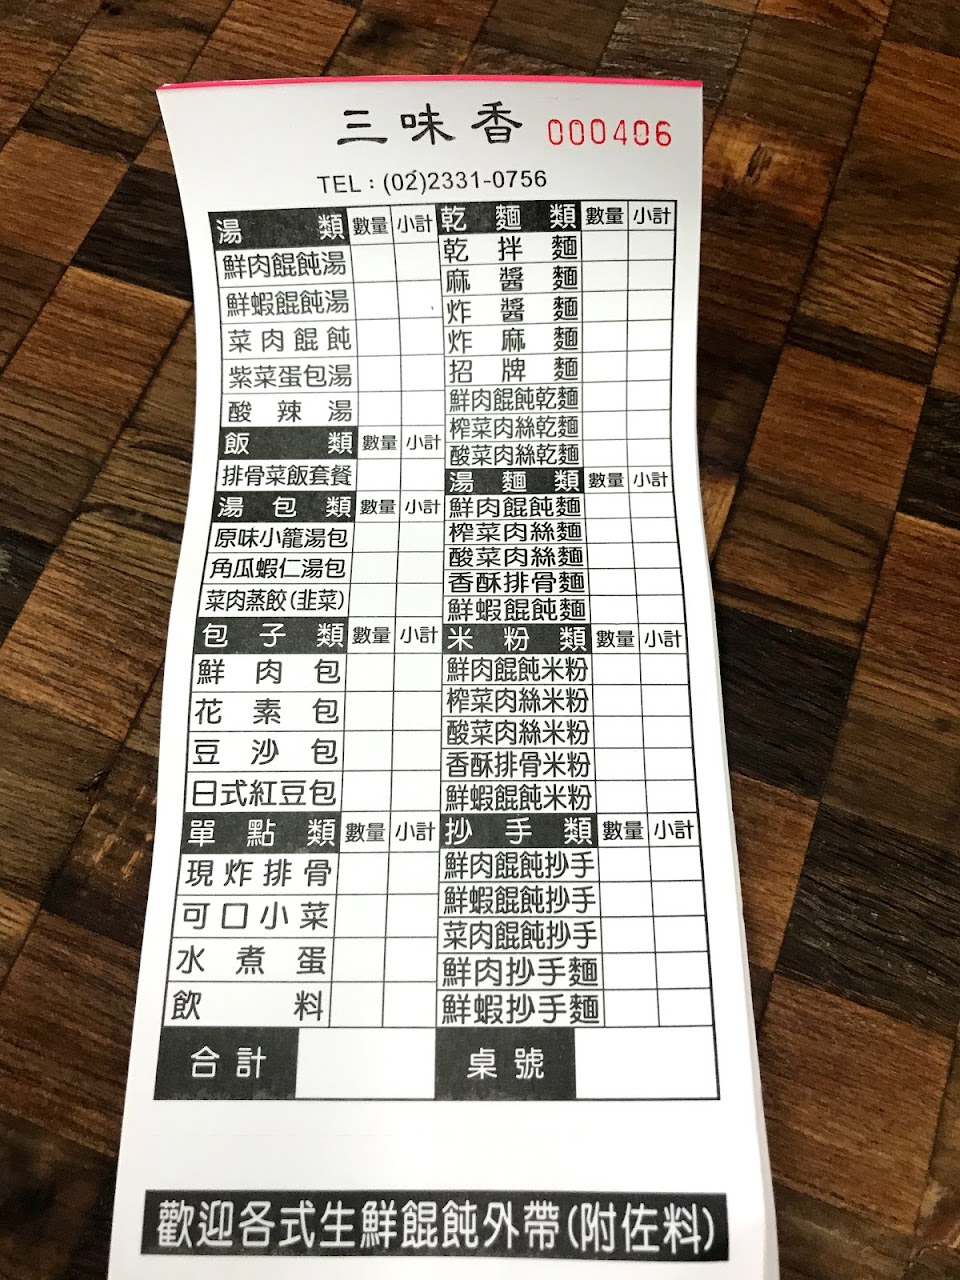 三味香 000406
TEL：(02)2331-0756
湯類 數量 小計
鮮肉餛飩湯
鮮蝦餛飩湯
菜肉餛飩
紫菜蛋包湯
酸辣湯
飯類 數量 小計
排骨菜飯套餐
湯包類 數量 小計
原味小籠湯包
角瓜蝦仁湯包
菜肉蒸餃(韭菜)
包子類 數量 小計
鮮肉包
花素包
豆沙包
日式紅豆包
單點類 數量 小計
現炸排骨
可口小菜
水煮蛋
飲料
合計
乾麵類 數量 小計
乾拌麵
麻醬麵
炸醬麵
炸麻麵
招牌麵
鮮肉餛飩乾麵
榨菜肉絲乾麵
酸菜肉絲乾麵
湯麵類 數量 小計
鮮肉餛飩麵
榨菜肉絲麵
酸菜肉絲麵
香酥排骨麵
鮮蝦餛飩麵
米粉類 數量 小計
鮮肉餛飩米粉
榨菜肉絲米粉
酸菜肉絲米粉
香酥排骨米粉
鮮蝦餛飩米粉
抄手類 數量 小計
鮮肉餛飩抄手
鮮蝦餛飩抄手
菜肉餛飩抄手
鮮肉抄手麵
鮮蝦抄手麵
桌號
歡迎各式生鮮餛飩外帶(附佐料)